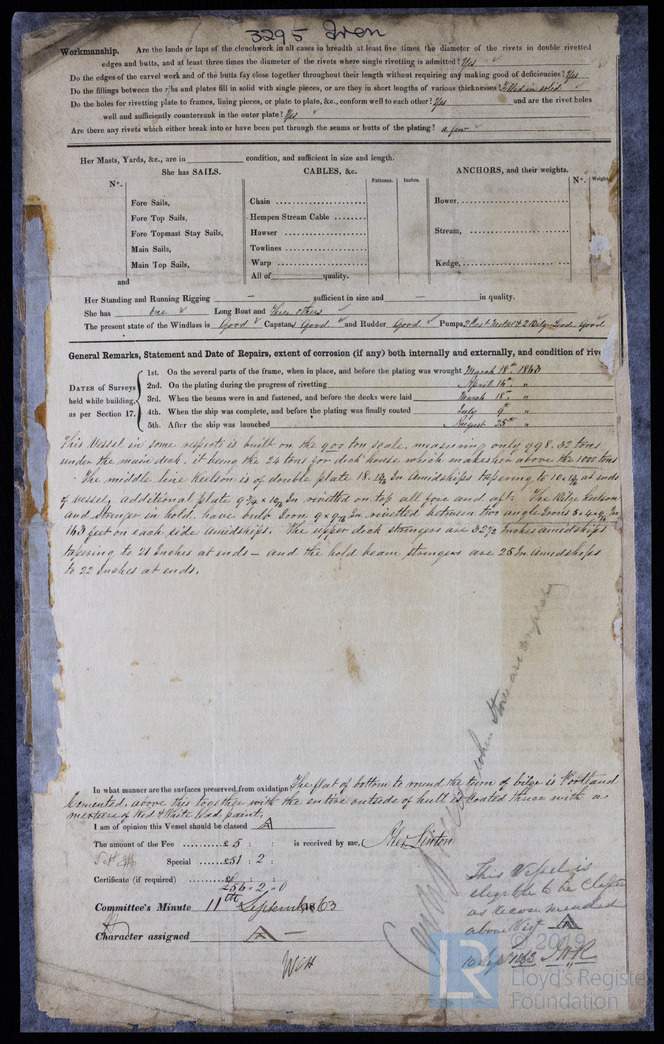 3295 Iron
Workmanship. Are the lands or laps of the clenchwork in all cases in breadth at least five times the diameter of the rivets in double rivetted
edges and butts, and at least three times the diameter of the rivets where single rivetting is admitted? Yes
Do the edges of the carvel work and of the butts fay close together throughout their length without requiring any making good of deficiencies? Yes
Do the fillings between the ribs and plates fill in solid with single pieces, or are they in short lengths of various thicknesses? filled in solid
Do the holes for rivetting plate to frames, lining pieces, or plate to plate, &c., conform well to each other? Yes and are the rivet holes
well and sufficiently countersunk in the outer plate? Yes
Are there any rivets which either break into or have been put through the seams or butts of the plating? a few
Her Masts, Yards, &c., are in condition, and sufficient in size and length.
She has SAILS. CABLES, &c. ANCHORS, and their weights.
N°. Fathoms. Inches. N°. Weight
Fore Sails, Chain Bower,
Fore Top Sails, Hempen Stream Cable
Fore Topmast Stay Sails, Hawser Stream,
Main Sails, Towlines
Main Top Sails, Warp Kedge,
and All of quality.
Her Standing and Running Rigging — sufficient in size and — in quality.
She has one Long Boat and Three others
The present state of the Windlass is Good Capstan Good and Rudder Good Pumps 2 Cast Metal & 2 Bilge Lead Good
General Remarks, Statement and Date of Repairs, extent of corrosion (if any) both internally and externally, and condition of rive
DATES of Surveys held while building, as per Section 17.
1st. On the several parts of the frame, when in place, and before the plating was wrought March 18th 1863
2nd. On the plating during the progress of rivetting April 14th "
3rd. When the beams were in and fastened, and before the decks were laid March 18 "
4th. When the ship was complete, and before the plating was finally coated July 9th "
5th. After the ship was launched August 25th "
This Vessel in some respects is built on the 900 ton scale, measuring only 998.32 tons
under the main deck. it being the 24 tons for deck house which makes her above the 1000 tons
The middle line Keelson is of double plate 18. In Amidships tapering to 10 at ends
of vessel, additional plate 9 ¾ × In rivetted on top all fore and aft. The Bilge Keelson
and Stringer in hold, have bulb Iron 9 × In rivetted between two angle Irons
163 feet on each side amidships. The upper deck stringers are 32½ Inches amidships
tapering to 21 Inches at ends — and the hold beam stringers are 25 In Amidships
to 22 Inches at ends.
In what manner are the surfaces preserved from oxidation? The flat of bottom to round the turn of bilge is Portland
Cemented, above this together with the entire outside of hull is coated thrice with a
mixture of Red & White lead paint.
I am of opinion this Vessel should be classed A
The amount of the Fee £5 : : is received by me, Alex Linton
Special £51 : 2 :
Certificate (if required)
£56 - 2 - 0
Committee's Minute 11th September 1863
Character assigned A
WCH
This Vessel is
eligible to be Classed
as recommended
above Viz A
10 Sept 1863
© 2019
LR
Lloyd's Register
Foundation